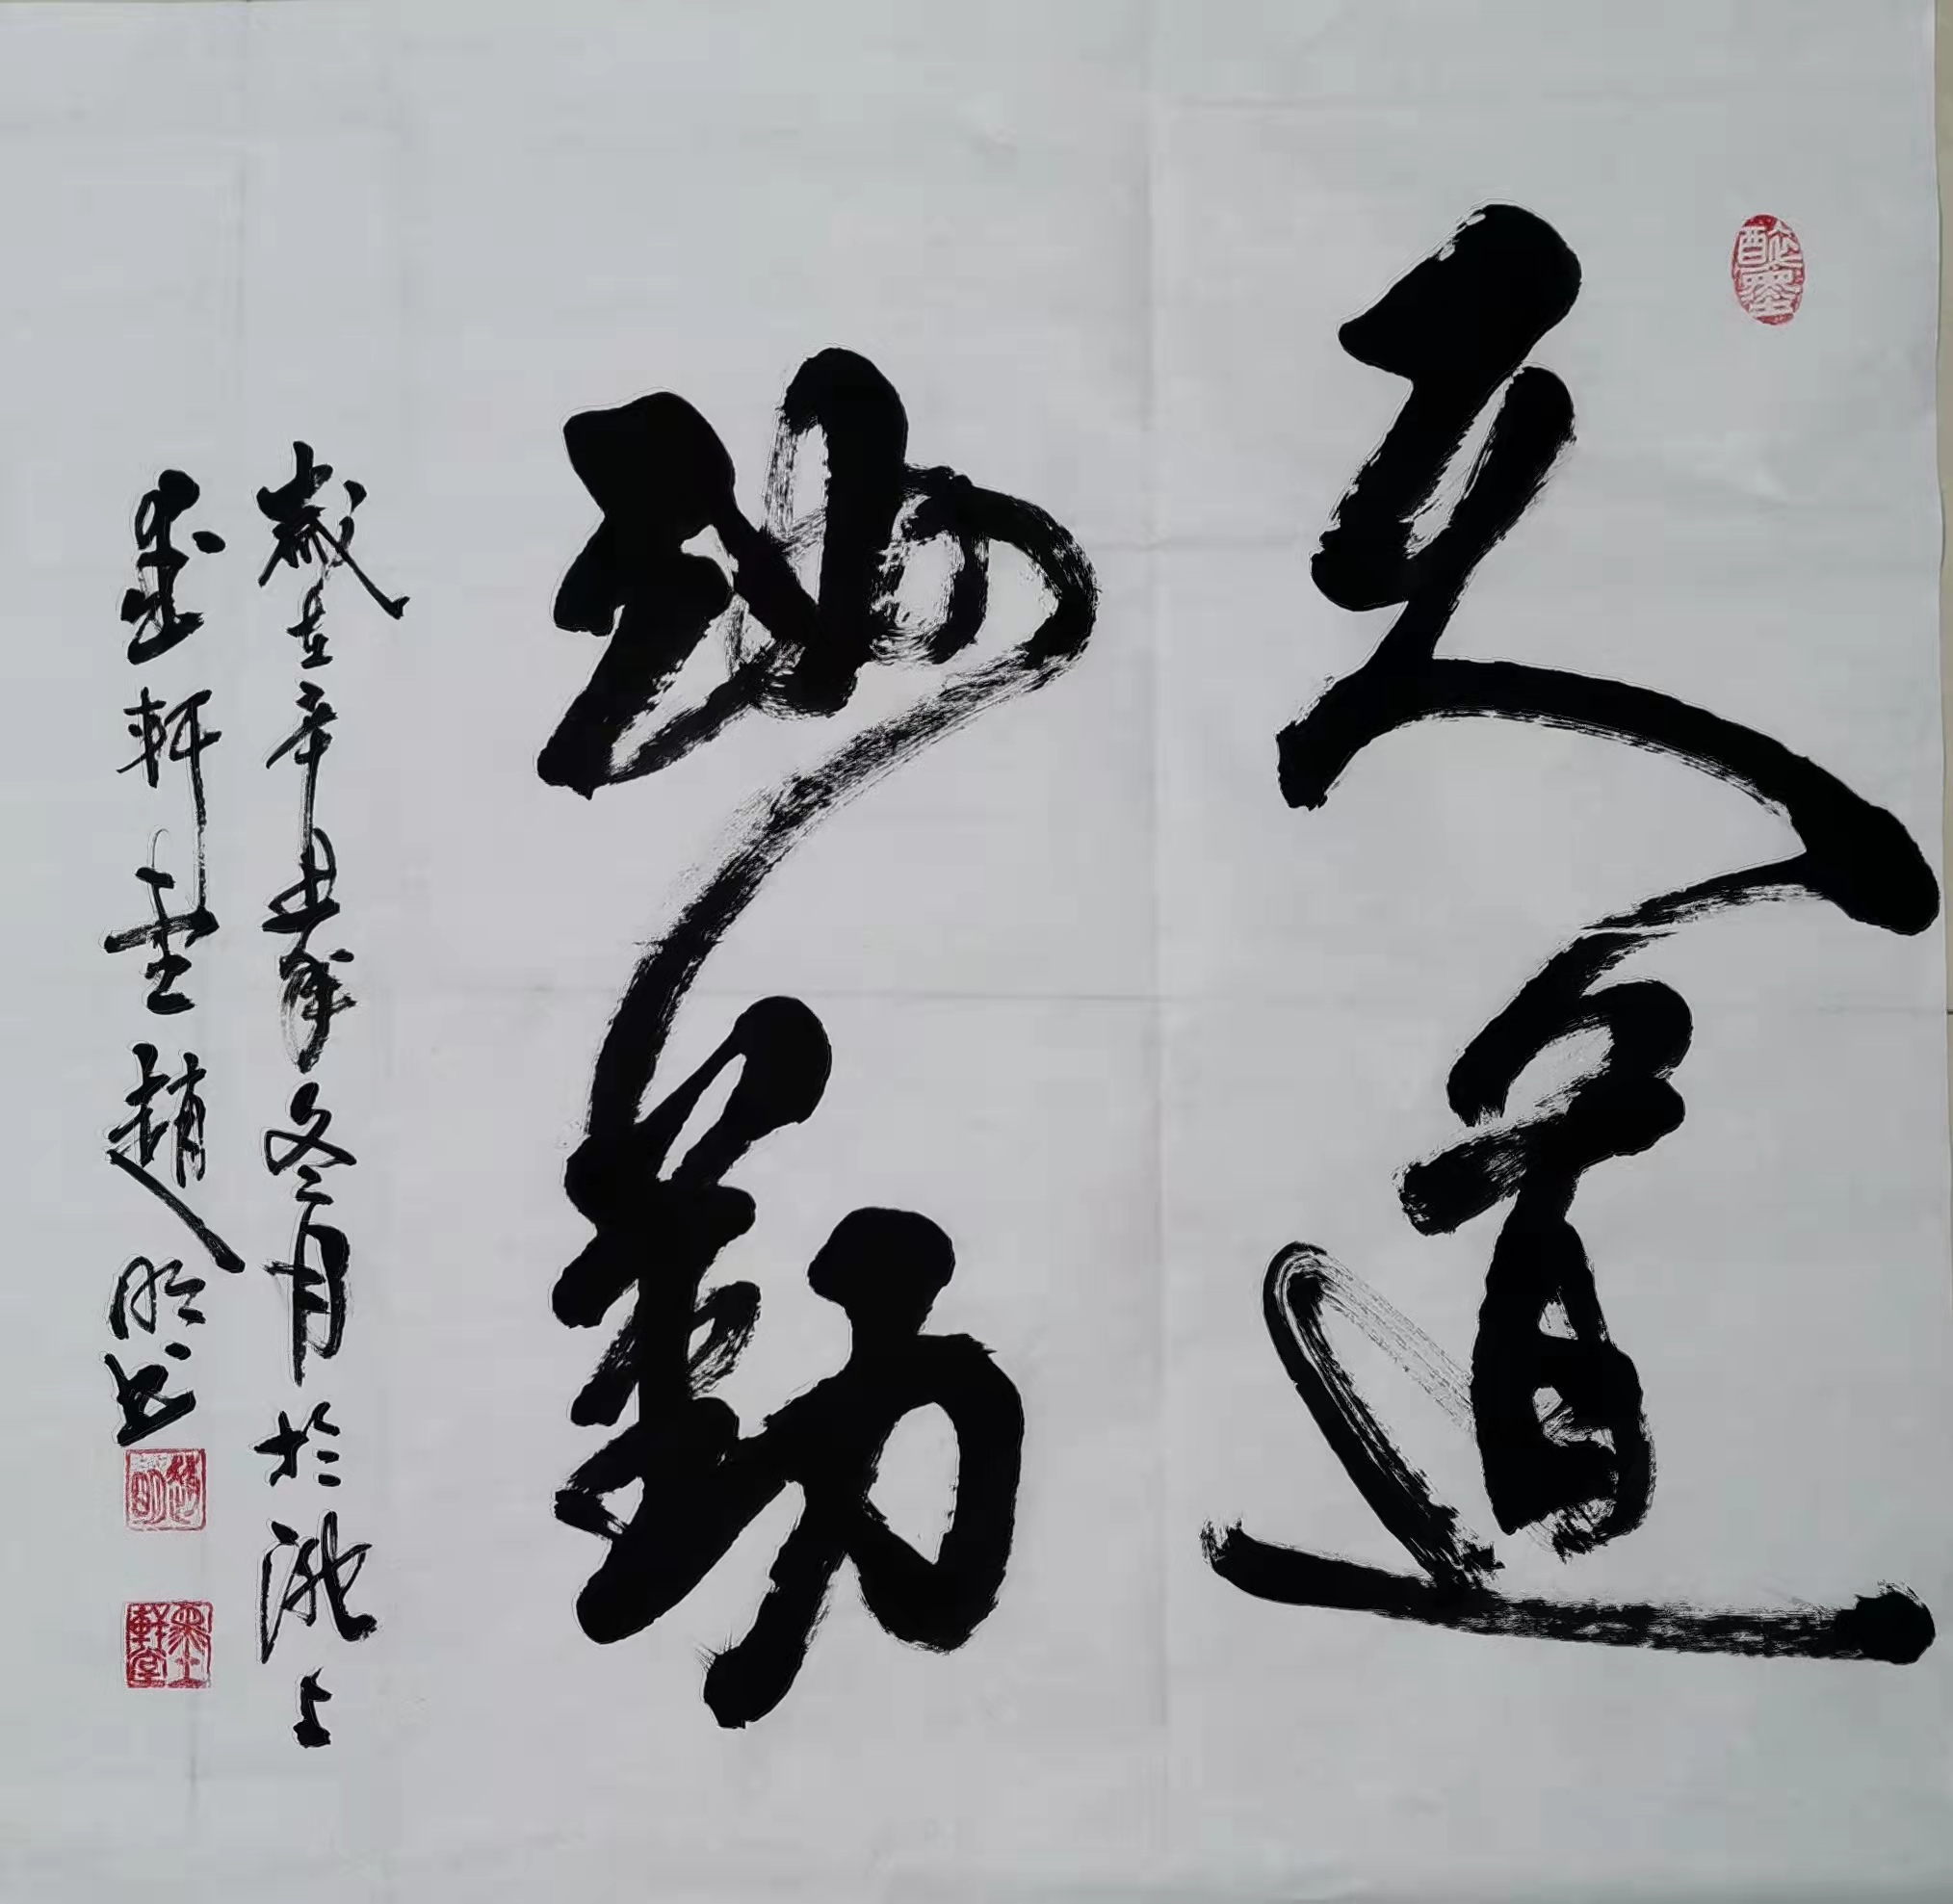 醉墨
天道
酬勤
歲在辛丑年冬月於上
軒堂趙明書
趙明